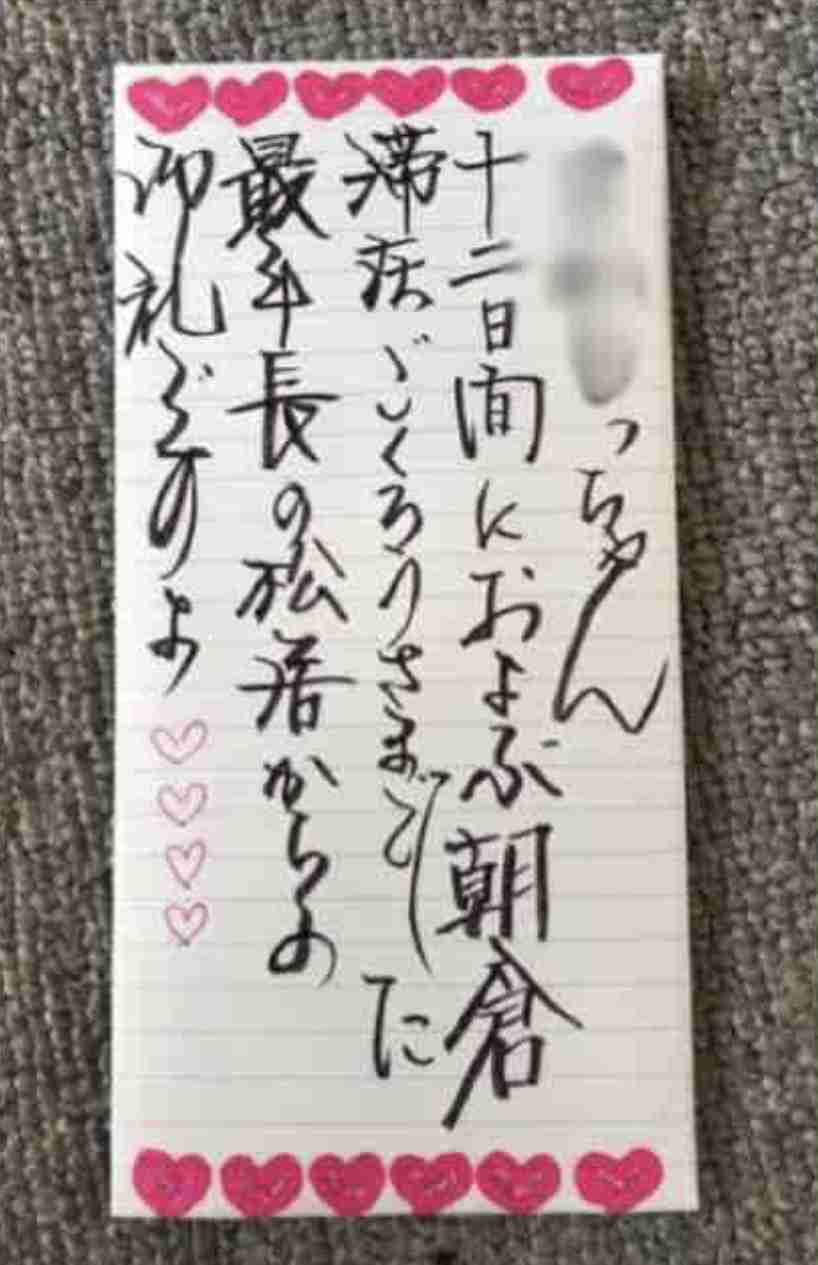 っちゃん
十二日間におよぶ朝倉
滞在ごくろうさまでした
最年長の松居からの
御礼ぞのよ